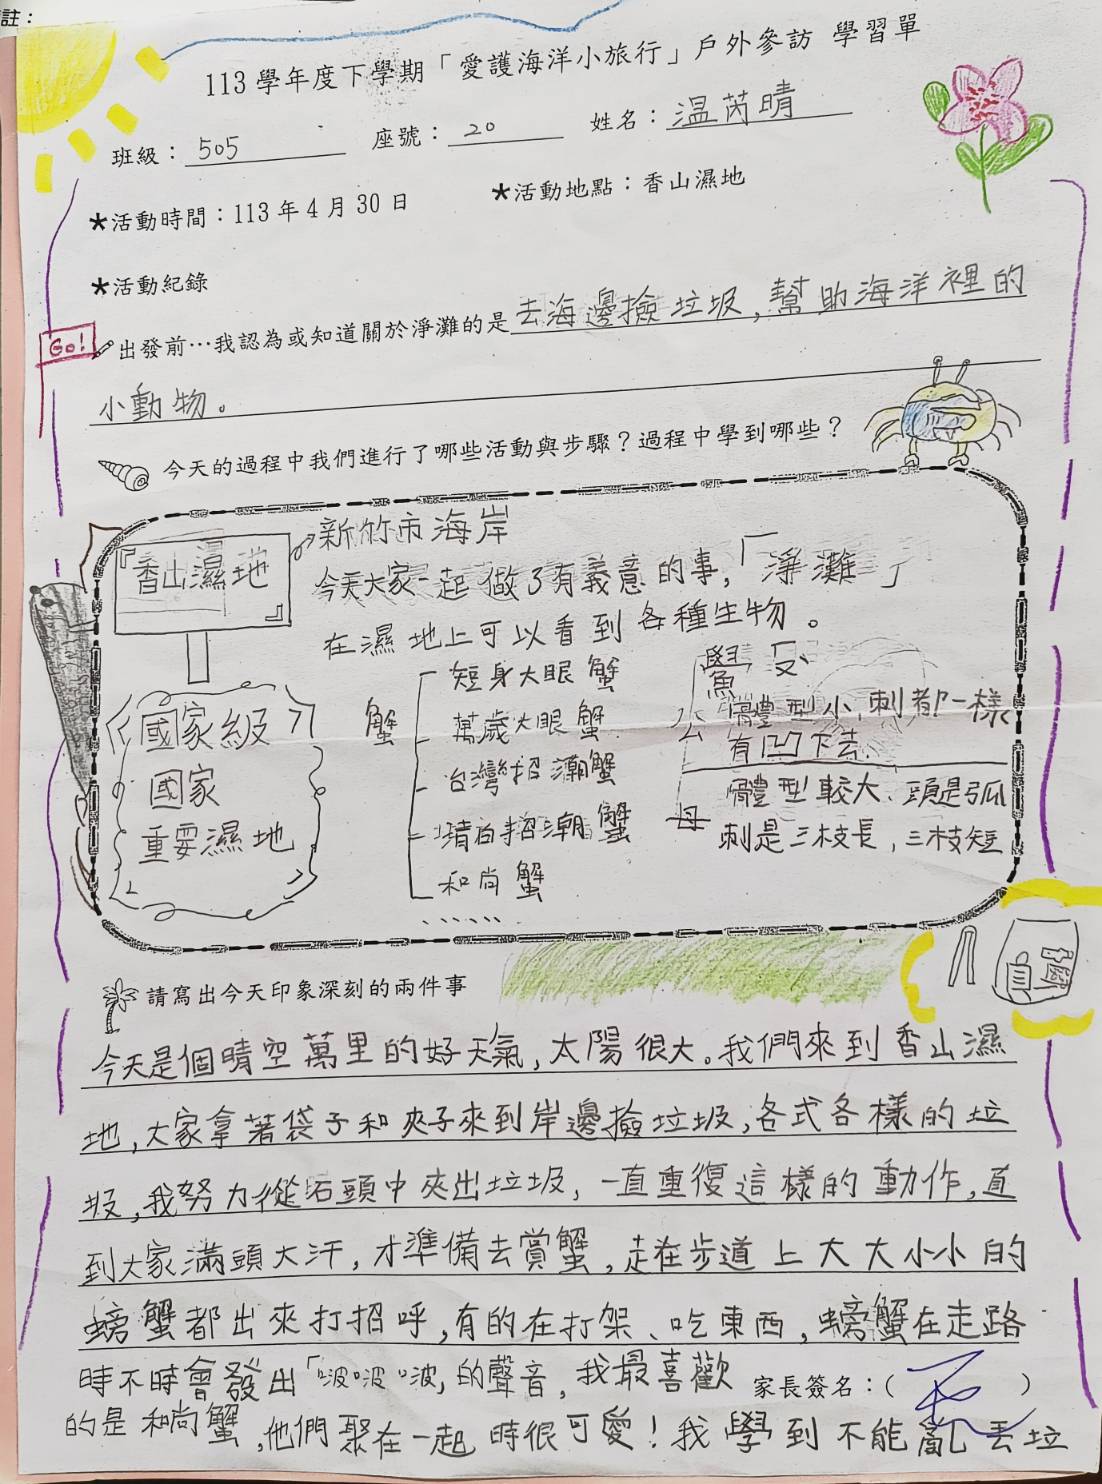 註：
113 學年度下學期「愛護海洋小旅行」戶外參訪 學習單
班級：505 座號：20 姓名：温芮晴
★活動時間：113 年 4 月 30 日 ★活動地點：香山濕地
★活動紀錄
Go!
出發前…我認為或知道關於淨灘的是去海邊撿垃圾，幫助海洋裡的
小動物。
今天的過程中我們進行了哪些活動與步驟？過程中學到哪些？
『香山濕地』
新竹市海岸
今天大家一起做了有義意的事，「淨灘」
在濕地上可以看到各種生物。
國家級
國家
重要濕地
蟹
短身大眼蟹
萬歲大眼蟹
台灣招潮蟹
清白招潮蟹
和尚蟹
……
鱟
公 體型小，刺都一樣
有凹下去
母 體型較大、頭是弧
刺是三枝長，三枝短
請寫出今天印象深刻的兩件事
今天是個晴空萬里的好天氣，太陽很大。我們來到香山濕
地，大家拿著袋子和夾子來到岸邊撿垃圾，各式各樣的垃
圾，我努力從石頭中夾出垃圾，一直重復這樣的動作，直
到大家滿頭大汗，才準備去賞蟹，走在步道上大大小小的
螃蟹都出來打招呼，有的在打架、吃東西，螃蟹在走路
時不時會發出「啵啵啵」的聲音，我最喜歡
家長簽名：( )
的是和尚蟹，他們聚在一起時很可愛！我學到不能亂丟垃